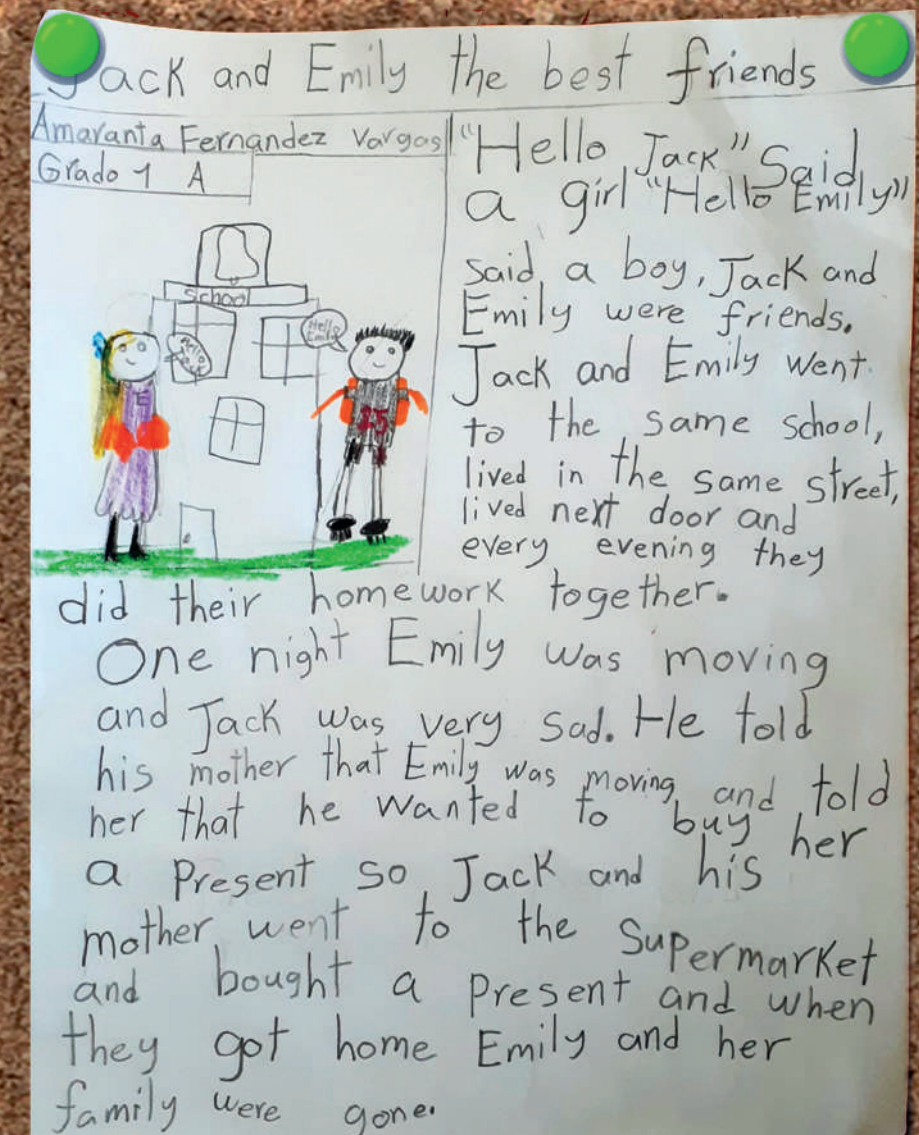 Jack and Emily the best friends
Amaranta Fernandez Vargas
Grado 1 A
School
Hello
Jack
Hello
Emily
E
15
"Hello Jack" Said
a girl "Hello Emily"
said a boy, Jack and
Emily were friends.
Jack and Emily went
to the same school,
lived in the same street,
lived next door and
every evening they
did their homework together.
One night Emily was moving
and Jack was very sad. He told
his mother that Emily was moving and told
her that he wanted to buy her
a present so Jack and his
mother went to the Supermarket
and bought a present and when
they got home Emily and her
family were gone.